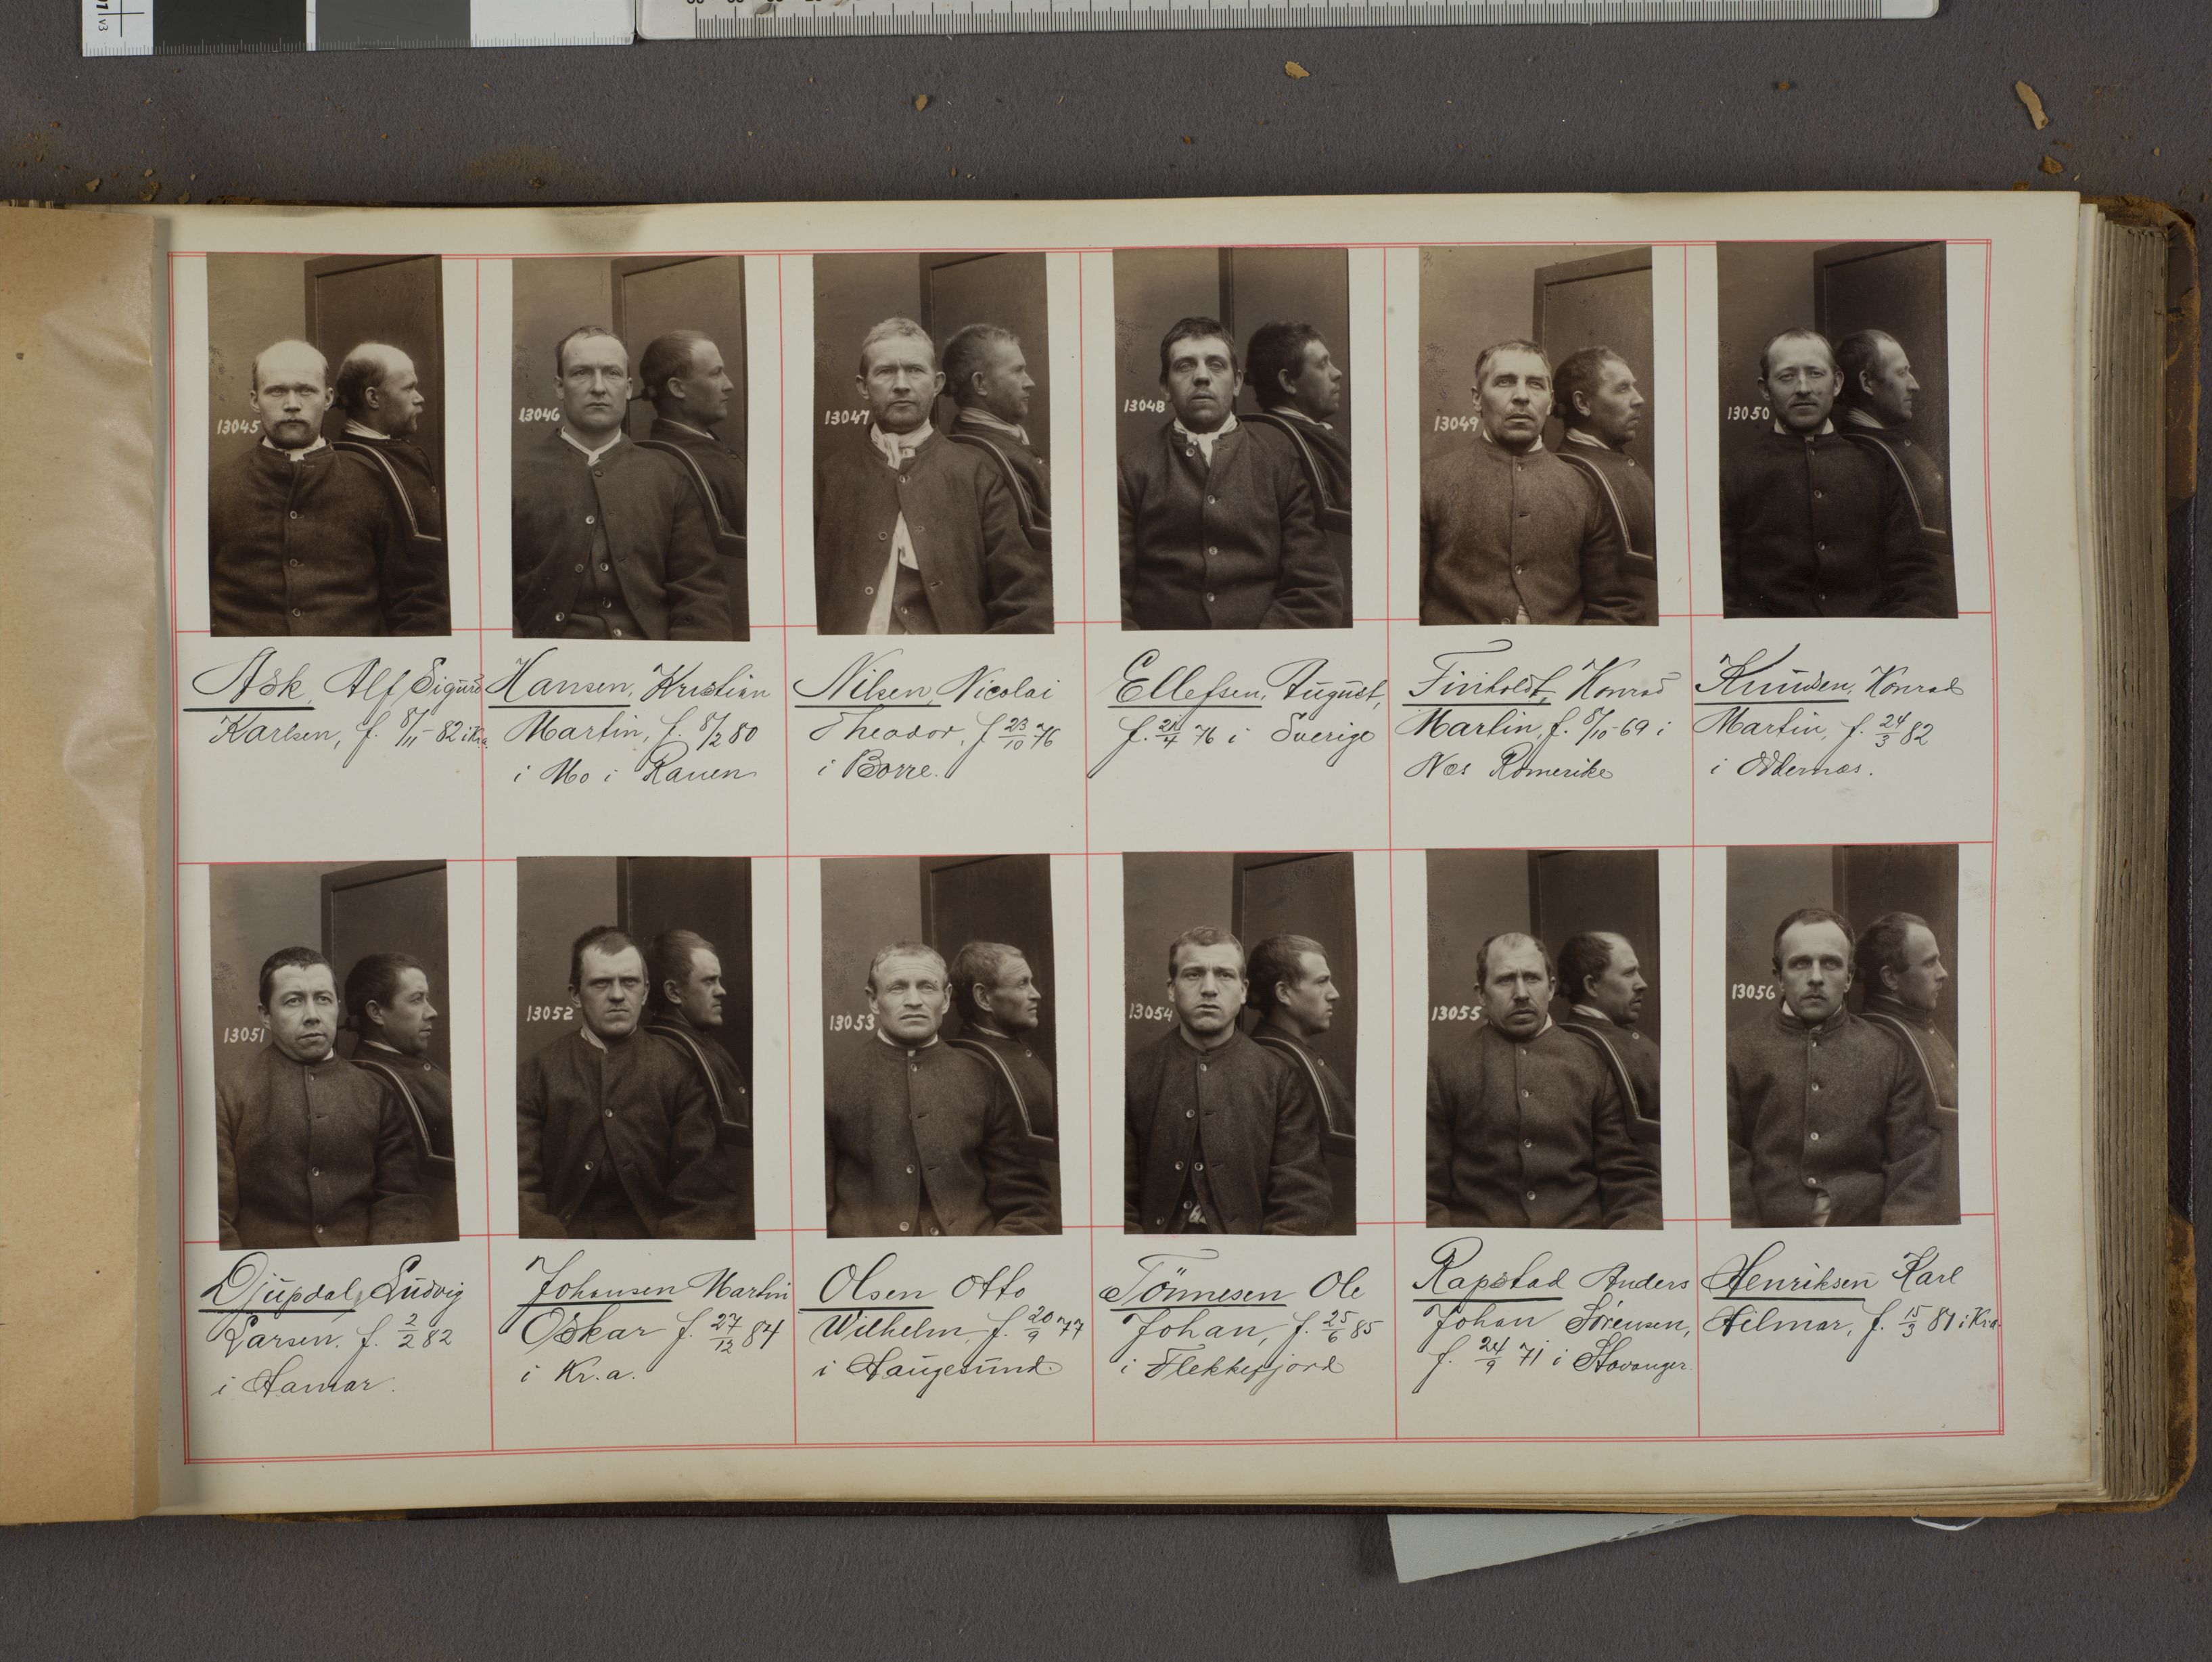 13045
13046
13047
13048
13049
13050
Ask, Alf Sigurd
Karlsen, f. 8/11-82 i Kr.a.
Hansen, Kristian
Martin, f. 8/2 80
i Mo i Ranen
Nilsen, Nicolai
Theodor, f 23/10 76
i Borre.
Ellefsen, August,
f. 4 76 i Sverige
Finholdt, Konrad
Martin, f. 8/10-69 i
Nes Romerike
Knudsen, Konrad
Martin, f. 24/3 82
i Oddernes.
13051
13052
13053
13054
13055
13056
Djupdal, Ludvig
Larsen. f. 2/2 82
i Hamar.
Johansen Martin
Oskar f. 27/12 84
i Kr.a.
Olsen Otto
Wilhelm, f. 20/9 77
i Haugesund.
Tönnesen Ole
Johan, f. 25/6 85
i Flekkefjord
Rapstad Anders
Johan Sörensen,
f. 24/9 71 i Stavanger
Henriksen Karl
Hilmar, f. 15/3 81 i Kr.a.